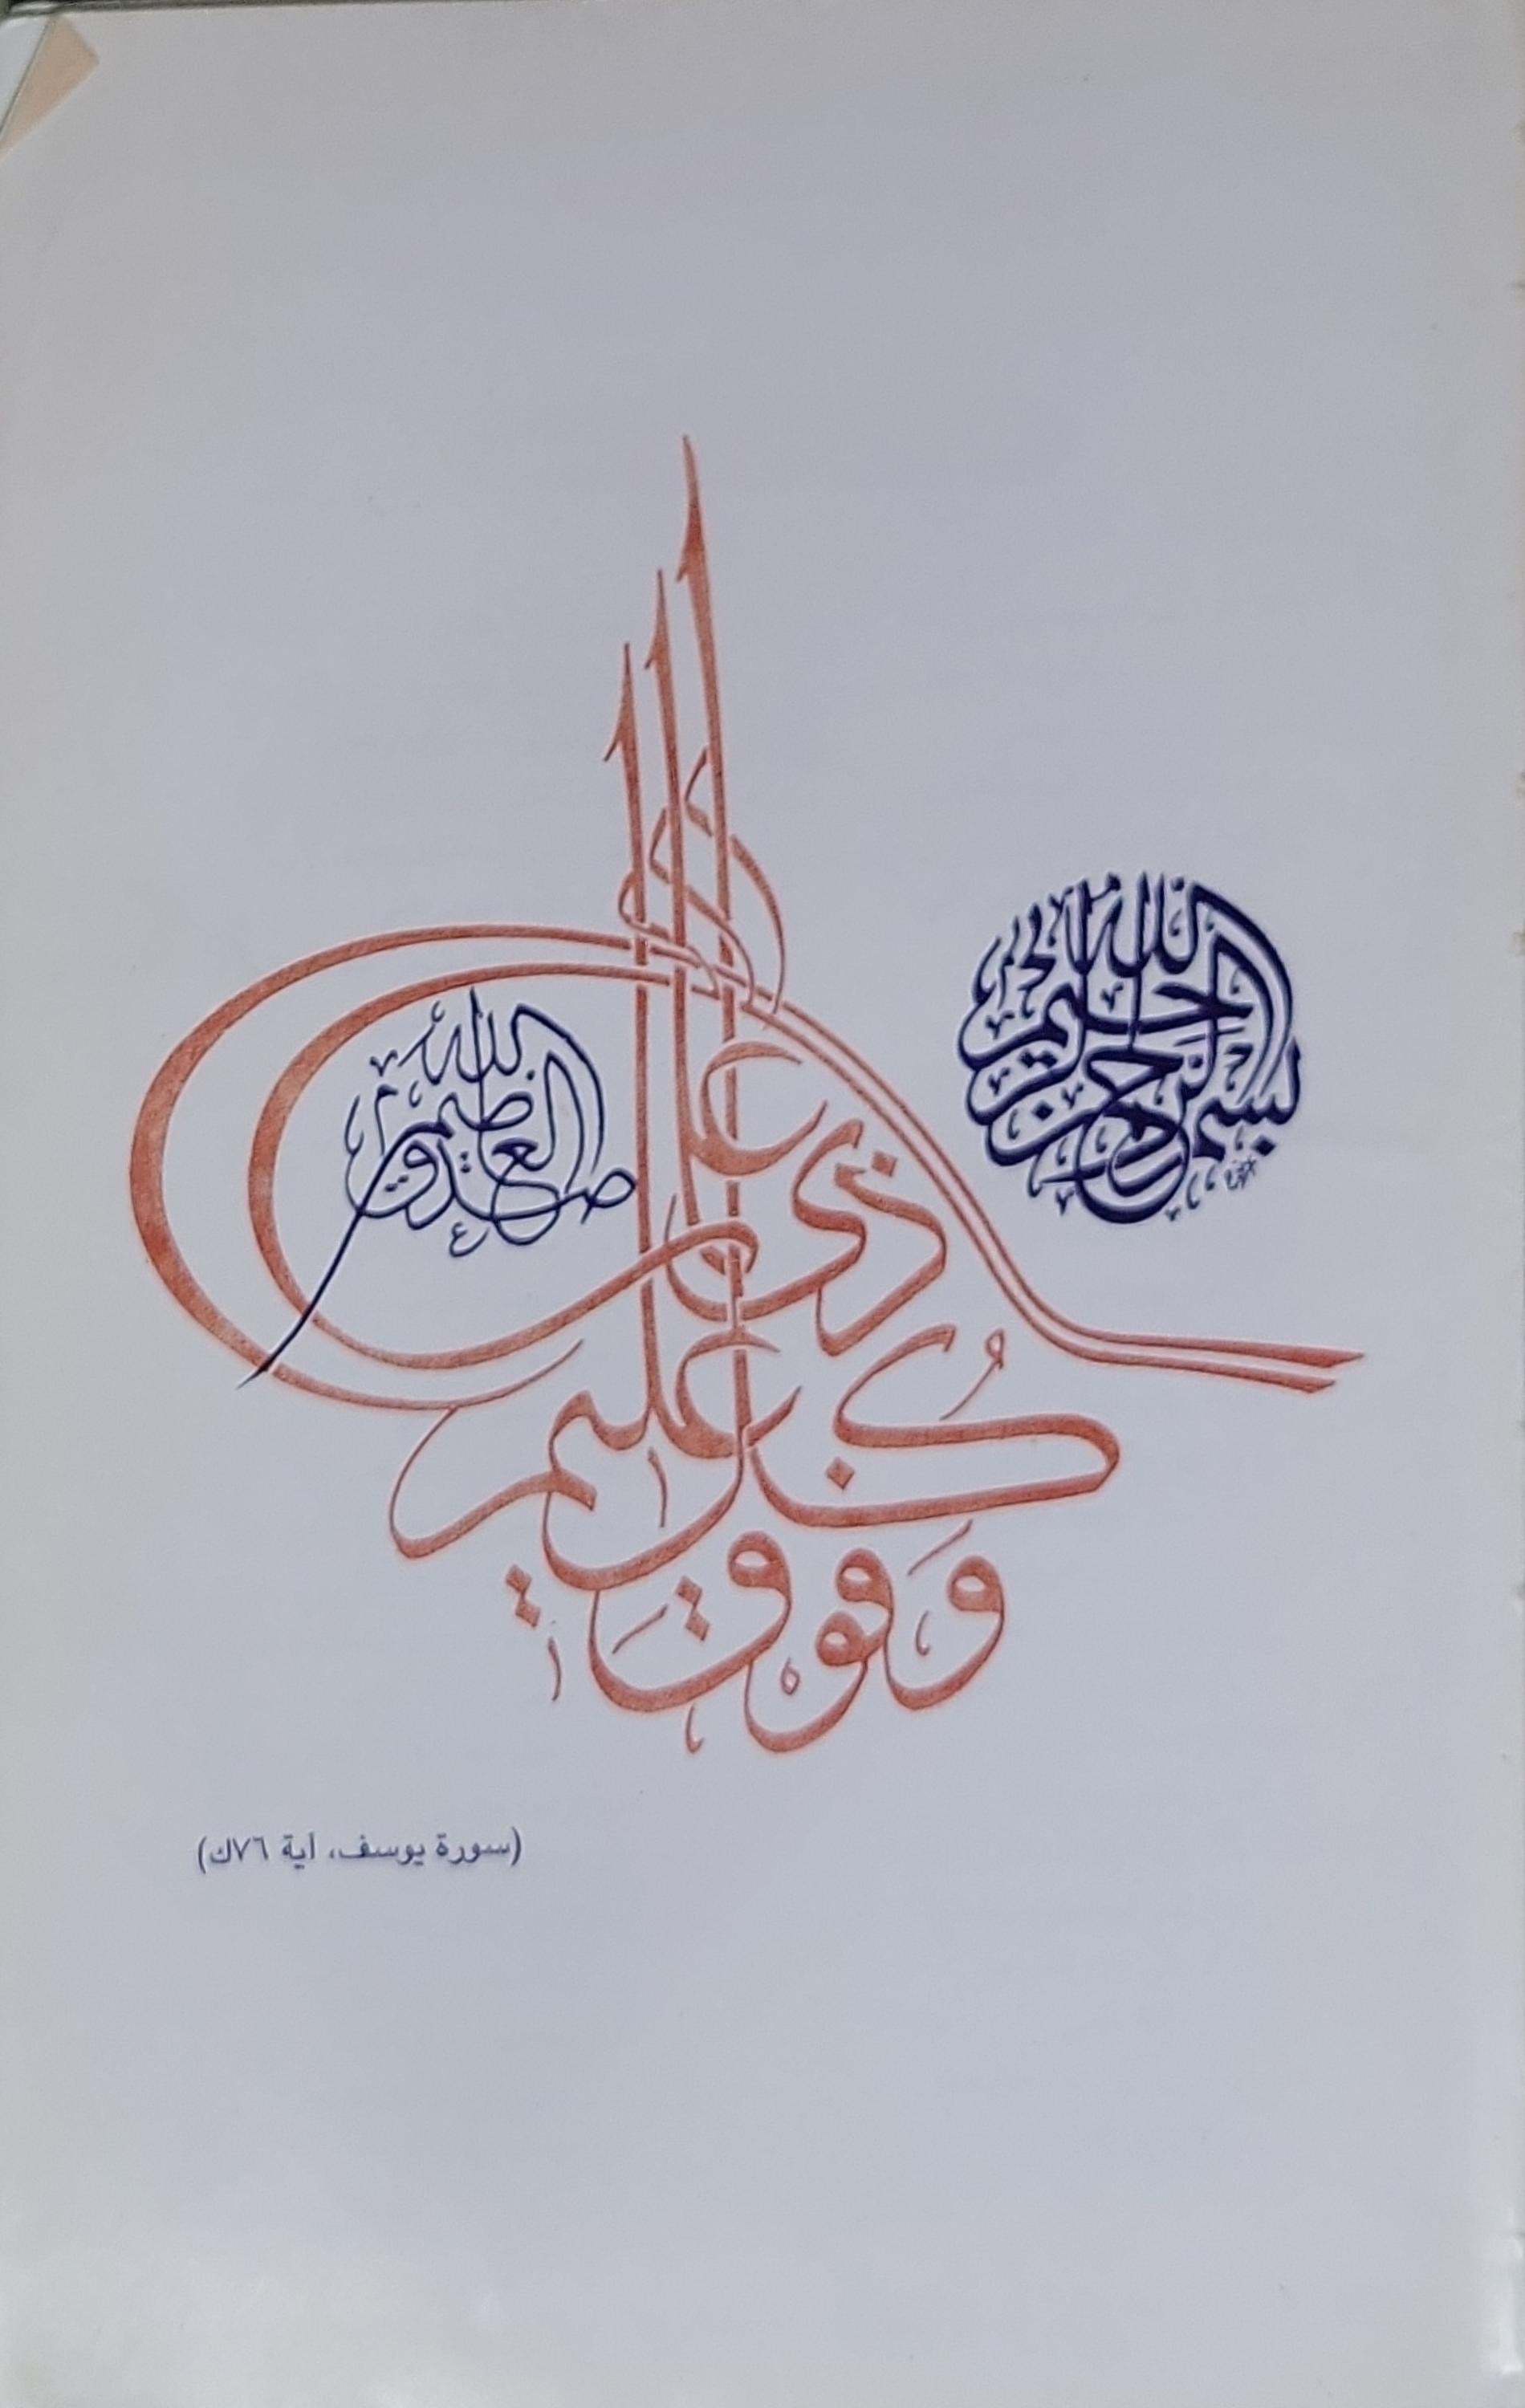 بسم الله الرحمن الرحيم
وَفَوْقَ كُلِّ ذِي عِلْمٍ عَلِيمٌ
صدق الله العظيم
(سورة يوسف، آية ٧٦ك)